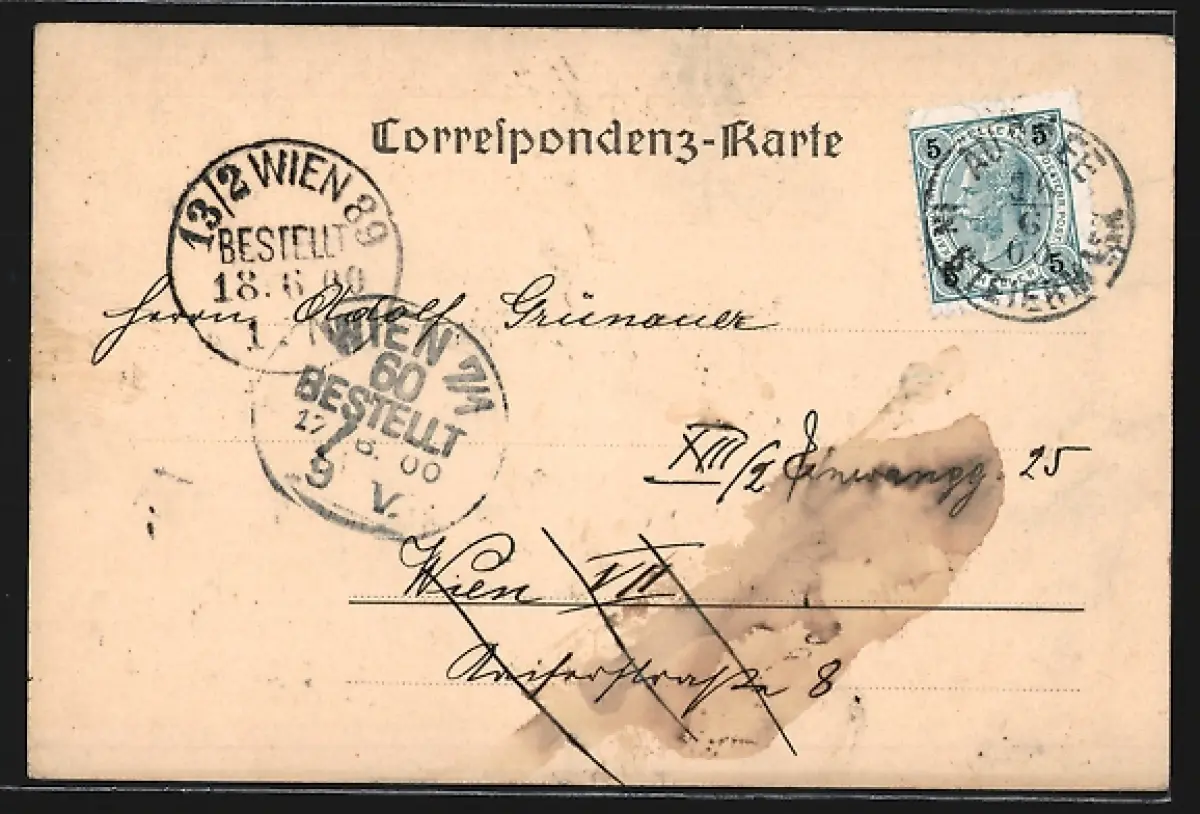 Correspondenz-Karte
5 5
5 5
AUSSEE
IN STEIERMARK
6
13/2 WIEN 89
BESTELLT
18. 6. 00
1. N
WIEN 7/1
60
BESTELLT
17. 6. 00
9 V.
Herrn Adolf Grünauer
XIII/2 25
Wien VII
Kaiserstraße 8